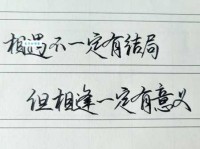 相遇不一定有结局
但相逢一定有意义